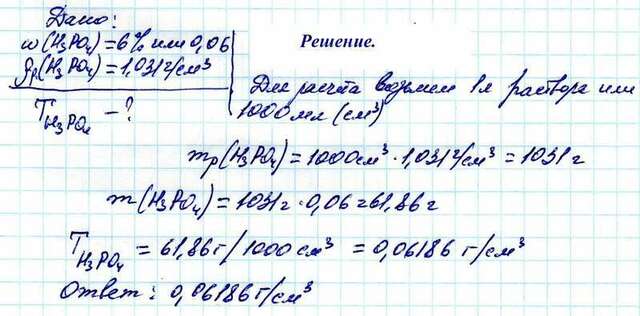 Дано:
ω(H₃PO₄)=6% или 0,06
ρр(H₃PO₄)=1,031г/см³
T H₃PO₄ – ?
Решение.
Для расчёта возьмем 1л раствора или
1000мл (см³)
mр(H₃PO₄)=1000см³·1,031г/см³=1031г
m(H₃PO₄)=1031г·0,06=61,86г
T H₃PO₄ = 61,86г/1000см³ = 0,06186 г/см³
Ответ: 0,06186г/см³